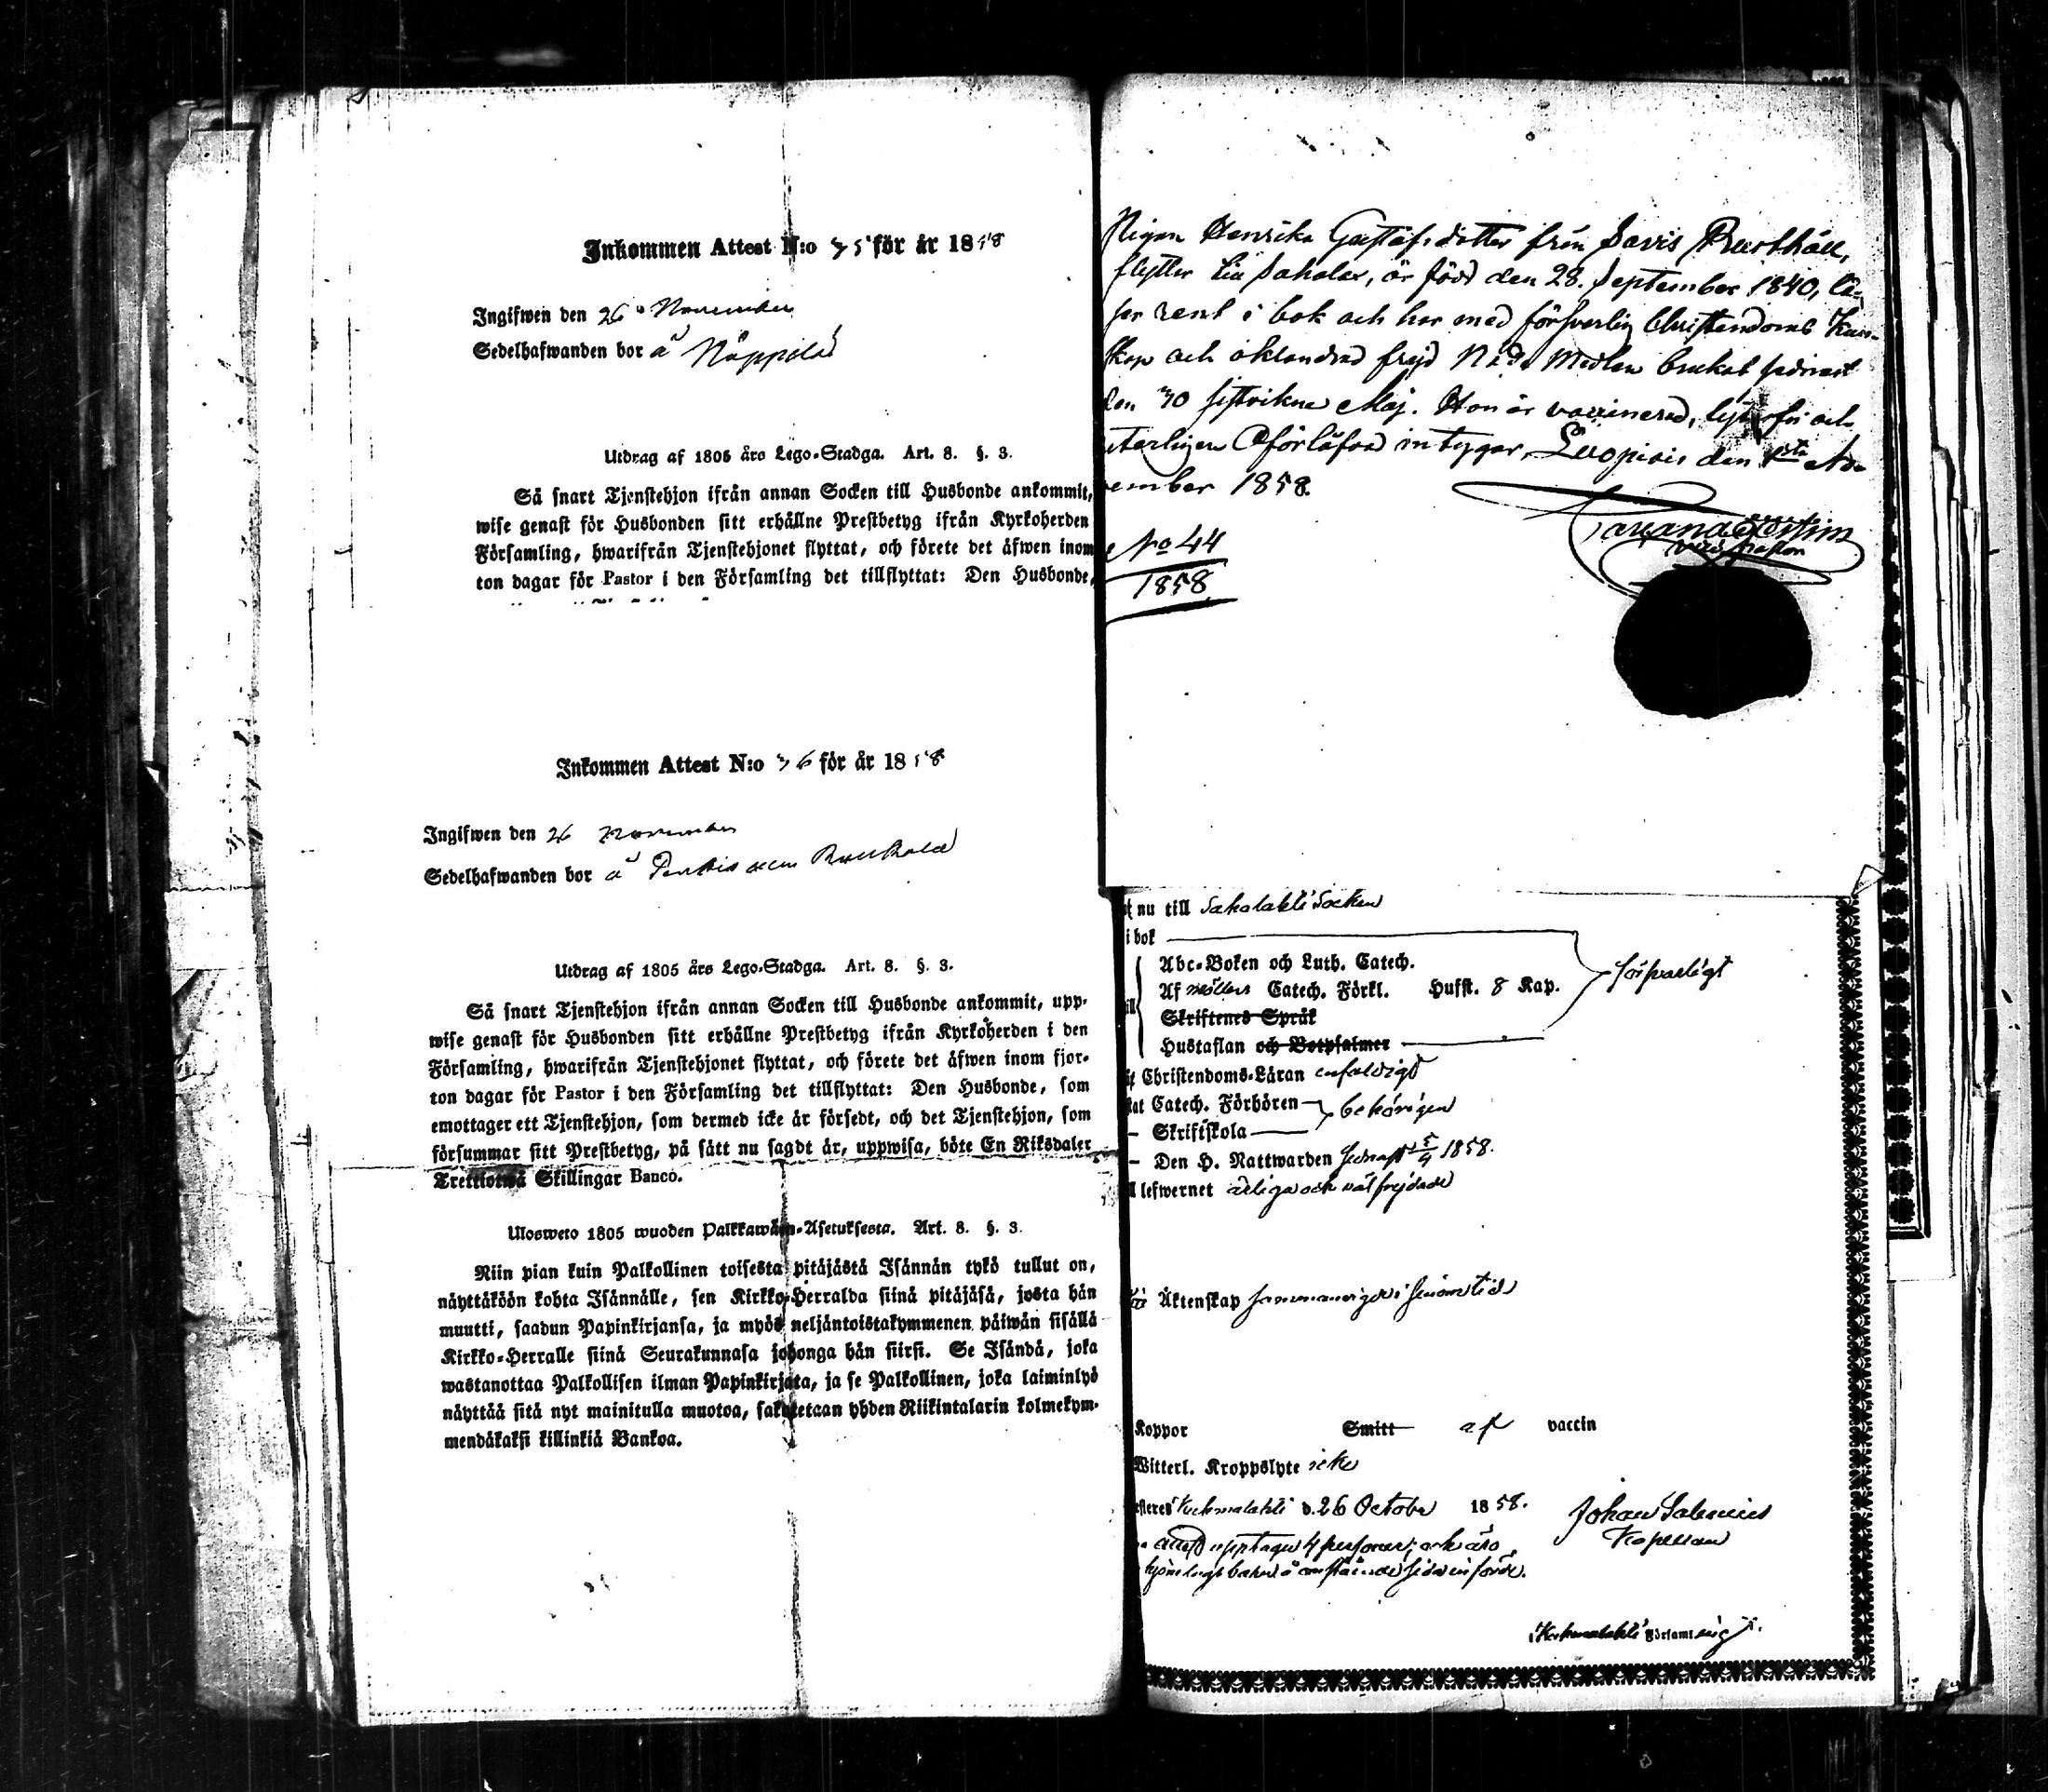 Inkommen Attest N:o 35 för år 1858
Ingifwen den 26 November
Sedelhafwanden bor å Näppilä
Utdrag af 1805 års Lego-Stadga. Art. 8. §. 3.
Så snart Tjenstehjon ifrån annan Socken till Husbonde ankommit,
wise genast för Husbonden sitt erhållne Prestbetyg ifrån Kyrkoherden
Församling, hwarifrån Tjenstehjonet flyttat, och förete det äfwen inom
ton dagar för Pastor i den Församling det tillflyttat: Den Husbonde,
Inkommen Attest N:o 36 för år 1858
Ingifwen den 26 November
Sedelhafwanden bor å
Utdrag af 1805 års Lego-Stadga. Art. 8. §. 3.
Så snart Tjenstehjon ifrån annan Socken till Husbonde ankommit, upp-
wise genast för Husbonden sitt erhållne Prestbetyg ifrån Kyrkoherden i den
Församling, hwarifrån Tjenstehjonet flyttat, och förete det äfwen inom fjor-
ton dagar för Pastor i den Församling det tillflyttat: Den Husbonde, som
emottager ett Tjenstehjon, som dermed icke är försedt, och det Tjenstehjon, som
försummar sitt Prestbetyg, på sätt nu sagdt är, uppwisa, böte En Riksdaler
Trettiotwå Skillingar Banco.
Ulosweto 1805 wuoden Palkkawäen-Asetuksesta. Art. 8. §. 3.
Niin pian kuin Palkollinen toisesta pitäjästä Isännän tykö tullut on,
näyttäköön kohta Isännälle, sen Kirkko-Herralda siinä pitäjäsä, josta hän
muutti, saadun Papinkirjansa, ja myös neljäntoistakymmenen päiwän sisällä
Kirkko-Herralle siinä Seurakunnasa johonga hän siirsi. Se Isändä, joka
wastanottaa Palkollisen ilman Papinkirjata, ja se Palkollinen, joka laiminlyö
näyttää sitä nyt mainitulla muotoa, sakotetaan yhden Riikintalarin kolmekym-
mendäkaksi killinkiä Bankoa.
Pigan Henrika Gustafsdotter från Savis Rusthåll,
flyttar till Sahalax, är född den 28. September 1840, lä-
ser rent i bok och har med försvarlig Christendoms Kun-
skap och oklandrad frejd Nåde Medlen brukat sednast
den 30 sistvikne Maj. Hon är vaccinerad, lytesfri och
veterligen Oförlofvad intygar, Luopiois den 1sta No-
vember 1858.
No 44
1858
nu till Sahalahti Socken
i bok
Abc-Boken och Luth. Catech.
Af Möllers Catech. Förkl. Husst. 8 Kap. försvarligt
Skriftenes Språk
Hustaflan och Botpsalmer
Christendoms-Läran enfaldigt
Catech. Förhören
- Skriftskola behörigen
- Den H. Nattwarden sednast 5/9 1858.
lefwernet ärliga och välfrejdade
Äktenskap sammanvigde i sinom tid
Koppor Smitt af vaccin
Witterl. Kroppslyte icke
Kuhmalahti d. 26 October 1858. Johan Salenius
Kapellan
attest upptager 4 personer; och äro
Kuhmalahti Församling